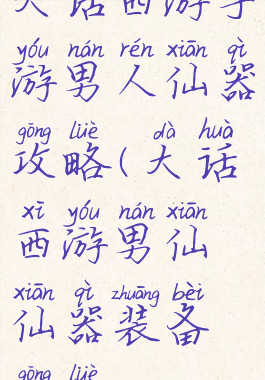 大话西游手
yóu nán rén xiān qì
游男人仙器
gōng lüè dà huà
攻略(大话
xī yóu nán xiān
西游男仙
xiān qì zhuāng bèi
仙器装备
gōng lüè